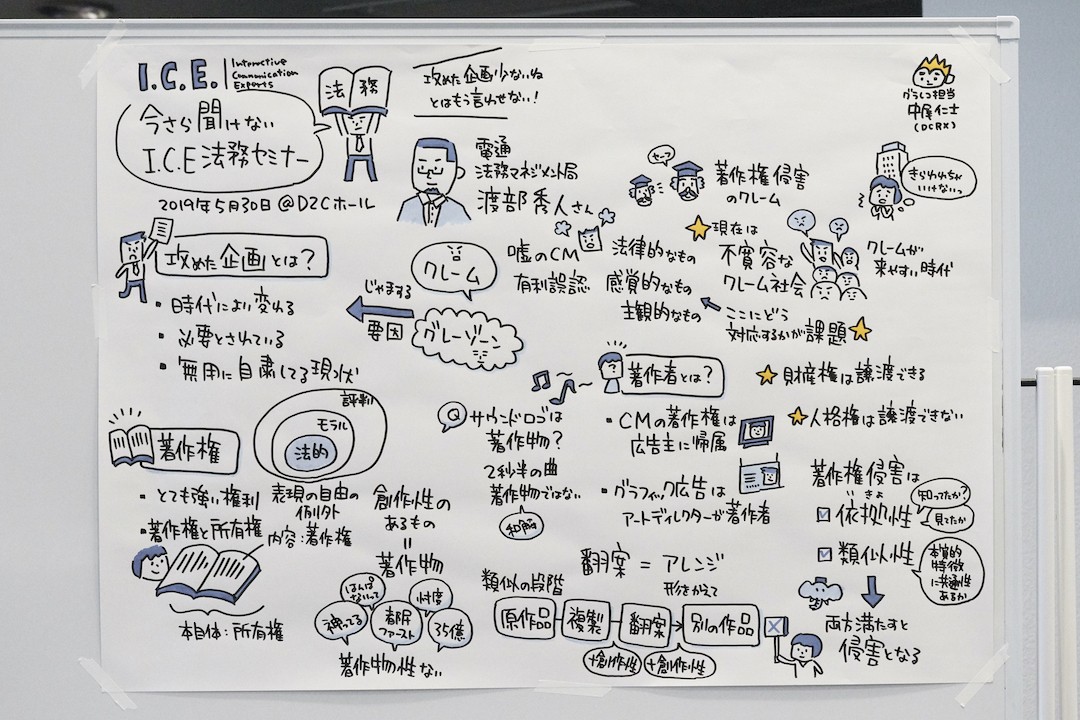 I.C.E.
Interactive
Communication
Experts
法務
今さら聞けない
I.C.E法務セミナー
2019年5月30日 @D2Cホール
攻めた企画少ないね
とはもう言わせない!
電通
法務マネジメント局
渡部秀人さん
グラレコ担当
中尾仁士
(DCRX)
セーフ
著作権侵害
のクレーム
きらわれちゃ
いけないっ
攻めた企画とは?
・時代により変わる
・必要とされている
・無用に自粛してる現状
じゃまする
要因
クレーム
グレーゾーン
嘘のCM
有利誤認
法律的なもの
感覚的なもの
主観的なもの
現在は
不寛容な
クレーム社会
クレームが
来やすい時代
ここにどう
対応するかが課題
著作権
・とても強い権利
・著作権と所有権
内容:著作権
本自体:所有権
評判
モラル
法的
表現の自由の
例外
創作性の
あるもの
=
著作物
はんぱ
ないって
忖度
神ってる
都民
ファースト
35億
著作物性ない
Q サウンドロゴは
著作物?
2秒半の曲
著作物ではない
和解
著作者とは?
・CMの著作権は
広告主に帰属
・グラフィック広告は
アートディレクターが著作者
財産権は譲渡できる
人格権は譲渡できない
著作権侵害は
いきょ
依拠性
知ってたか?
見てたか
類似性
本質的
特徴
に共通性
あるか
両方満たすと
侵害となる
翻案=アレンジ
形をかえて
類似の段階
原作品
複製
翻案
別の作品
+創作性
+創作性